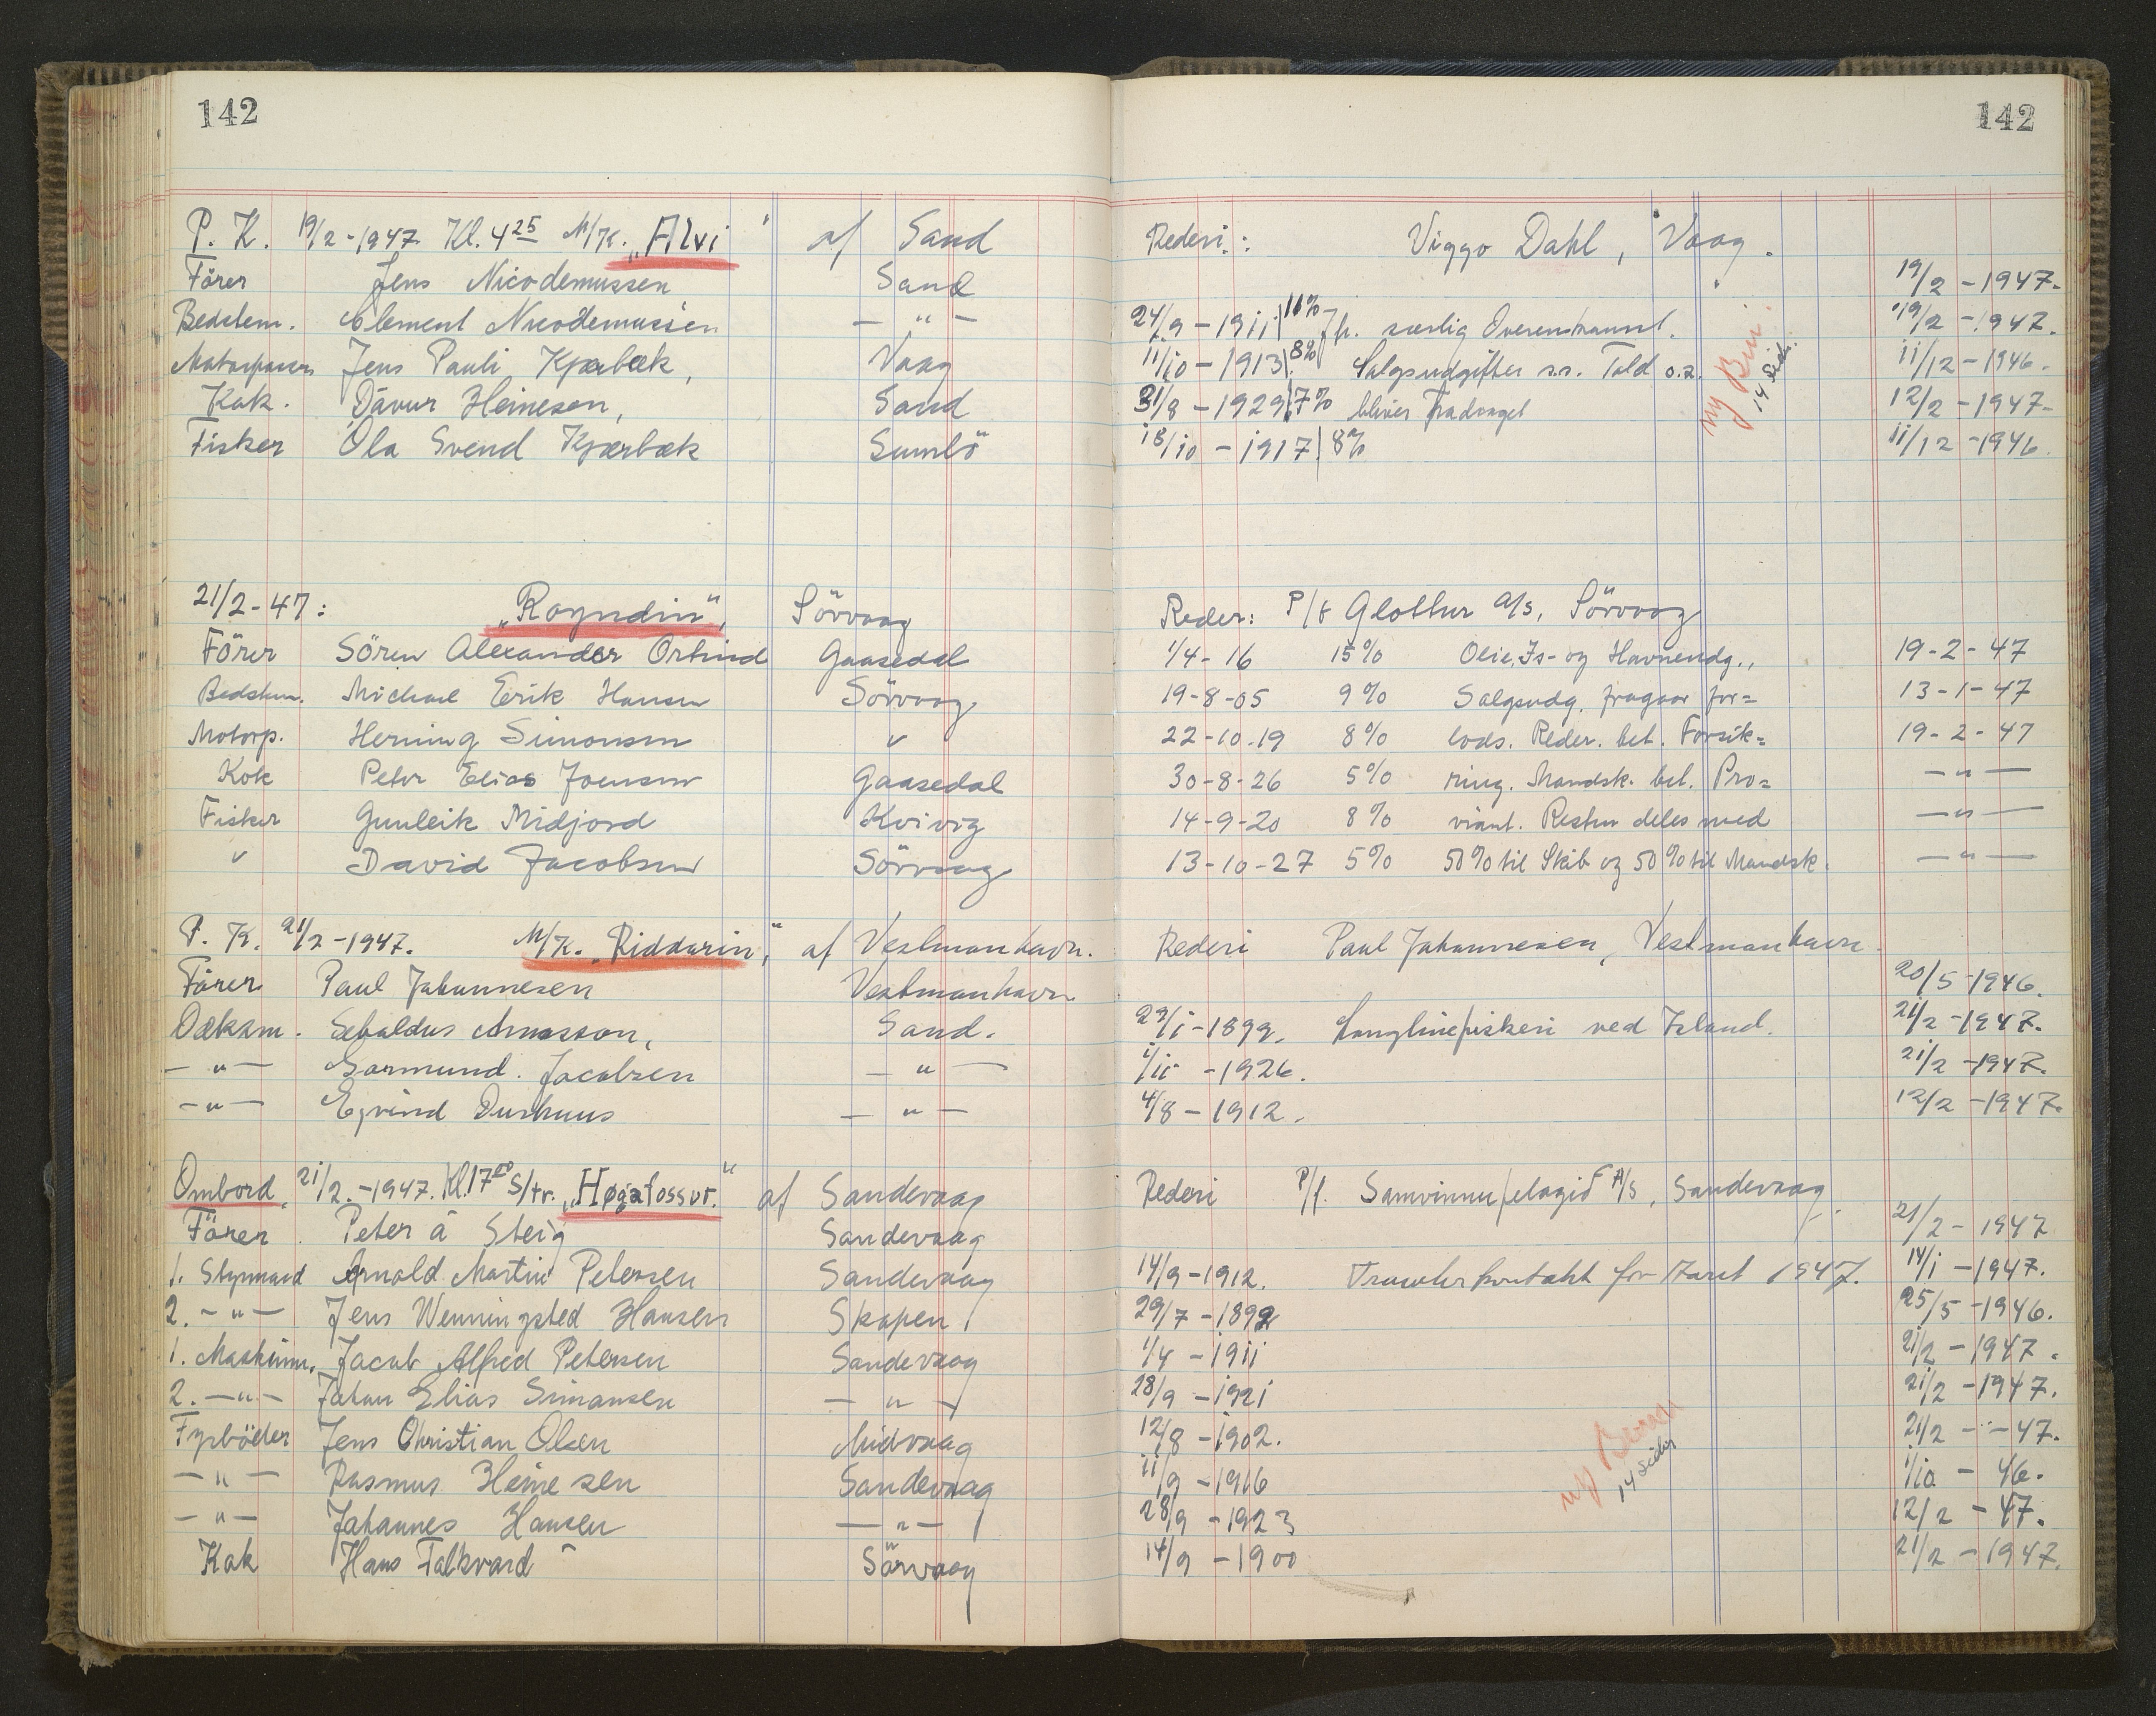 142
142
P. K. 19/2-1947. Kl. 4 25 M/K. „Alvi" af Sand Rederi: Viggo Dahl, Vaag.
Förer Jens Nicodemussen Sand 19/2-1947.
Bedstem. Clement Nicodemussen —"— 24/9-1911 11% Jfr. særlig Overenskomst. 19/2-1947.
Motorpasser Jens Pauli Kjærbæk, Vaag 11/10-1913 8% Salgsudgifter s.s. Told o.s. 11/12-1946.
Kok. Dávur Heinesen, Sand 31/8-1929 7% bliver fradraget 12/2-1947-
Fisker Óla Svend Kjærbæk Sumbö 18/10-1917 8% 11/12-1946.
ny
14 Sid.
21/2-47: „Royndin", Sörvaag Reder: P/f Glottur A/S, Sörvaag
Förer Sören Alexander Gaasedal 1/4-16 15% Olie, Is- og Havneudg., 19-2-47
Bedstem. Michael Eirik Hansen Sörvaag 19-8-05 9% Salgsudg. fragaar for= 13-1-47
Motorp. Herning Simonsen " 22-10.19 8% lods. Reder. bet. Forsik= 19-2-47
Kok Peter Elias Joensen Gaasedal 30-8-26 5% ring. Mandsk. bet. Pro= —"—
Fisker Gunleik Midjord Kvivig 14-9-20 8% viant. Resten deles med —"—
" David Jacobsen Sörvaag 13-10-27 5% 50% til Skib og 50% til Mandsk. —"—
P. K. 21/2-1947. M/K. „Riddarin", af Vestmanhavn. Rederi Paul Johannesen, Vestmanhavn.
Förer Paul Johannesen Vestmanhavn 20/5-1946.
Dæksm. Sebaldus Arnason, Sand. 29/1-1899. Langlinefiskeri ved Island. 21/2-1947.
—"— Gormund. Jacobsen —"— 1/11-1926. 21/2-1947.
—"— Ejvind Durhuus —"— 4/8-1912. 12/2-1947.
Ombord. 21/2.-1947. Kl. 17 00 S/tr. „Høgafossur." af Sandevaag Rederi P/f. Samvinnufelagið A/S, Sandevaag.
Förer. Peter á Steig Sandevaag 21/2-1947
1. Styrmand Arnold Martin Petersen Sandevaag 14/9-1912. Trawlerkontrakt for Aaret 1947. 14/1-1947.
2. —"— Jens Wenningsted Hansen Skopen 29/7-1892 25/5-1946.
1. Maskinm. Jacob Alfred Petersen Sandevaag 1/4-1911 21/2-1947.
2. —"— Johan Elias Simonsen —"— 28/9-1921 21/2-1947.
Fyrböder Jens Christian Olsen Midvaag 12/8-1902. 21/2-"-47.
—"— Rasmus Heinesen Sandevaag 11/9-1916 1/10-46.
—"— Johannes Hansen —"— 28/9-1923 12/2-47.
Kok Hans Falkvard Sörvaag 14/9-1900 21/2-1947.
ny
14 Sider